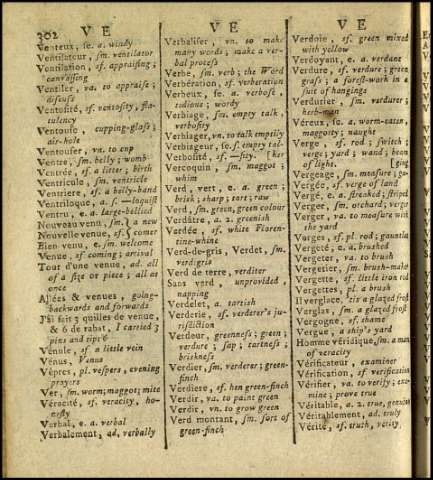 302 V E
V E
V E
Venteux, se. a. windy
Ventilateur, sm. ventilator
Ventilation, sf. appraising;
canvassing
Ventiler, va. to appraise;
discuss
Ventosité, sf. ventosity, fla-
tulency
Ventouse, cupping-glass;
air-hole
Ventouser, vn. to cup
Ventre, sm. belly; womb
Ventrée, sf. a litter; birth
Ventricule, sm. ventricle
Ventriere, sf. a belly-band
Ventriloque, a. f. —loquist
Ventru, e. a. large-bellied
Nouveau venu, sm. } a new
Nouvelle venue, sf. } comer
Bien venu, e. sm. welcome
Venue, sf. coming; arrival
Tout d'une venue, ad. all
of a size or piece; all at
once
Allées & venues, going-
backwards and forwards
J'ai fait 3 quilles de venue,
& 6 de rabat, I carried 3
pins and tipt 6
Vénule, sf. a little vein
Vénus, Venus
Vêpres, pl. vespers, evening
prayers
Ver, sm. worm; maggot; mite
Véracité, sf. veracity, ho-
nesty
Verbal, e. a. verbal
Verbalement, ad. verbally
Verbaliser, vn. to make
many words; make a ver-
bal process
Verbe, sm. verb; the Word
Verbération, sf. verberation
Verbeux, se. a. verbose,
tedious; wordy
Verbiage, sm. empty talk,
verbosity
Verbiager, vn. to talk emptily
Verbiageur, se. f. empty tal-
Verbosité, sf. —sity. [ker
Vercoquin, sm. maggot;
whim
Verd, vert, e. a. green;
brisk; sharp; tart; raw
Verd, sm. green, green colour
Verdâtre, a. 2. greenish
Verdée, sf. white Floren-
tine-whine
Verd-de-gris, Verdet, sm.
verdigris
Verd de terre, verditer
Sans verd, unprovided,
napping
Verdelet, a. tartish
Verderie, sf. verderer's ju-
risdiction
Verdeur, greenness; green;
verdure; sap; tartness;
briskness
Verdier, sm. verderer; green-
finch
Verdiere, sf. hen green-finch
Verdir, va. to paint green
Verdir, vn. to grow green
Verd montant, sm. sort of
green-finch
Verdoie, sf. green mixed
with yellow
Verdoyant, e. a. verdant
Verdure, sf. verdure; green
grass; a forest-work in a
suit of hangings
Verdurier, sm. verdurer;
herb-man
Véreux, se. a. worm-eaten,
maggotty; naught
Verge, sf. rod; switch;
verge; yard; wand; beam
of light. [ging
Vergeage, sm. measure;
Vergée, sf. verge of land
Vergé, e. a. streaked; striped
Verger, sm. orchard; verge
Verger, va. to measure with
the yard
Verges, sf. pl. rod;
Vergeté, e. a. brushed
Vergeter, va. to brush
Vergetier, sm. brush-make
Vergette, sf. little iron rod
Vergettes, pl. a brush
Il verglace, tis a glazed fros
Verglas, sm. a glazed frost
Vergogne, sf. shame
Vergue, a ship's yard
Homme véridique, sm. a man
of veracity
Vérificateur, examiner
Vérification, sf. verification
Vérifier, va. to verify; exa-
mine; prove true
Véritable, a. 2. true, genuine
Véritablement, ad. truly
Vérité, sf. truth, verity